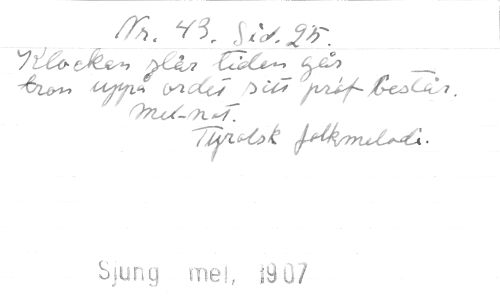 Nr. 43. Sid. 25.
Klockan slår tiden går
tron uppå ordet sitt prof består.
Mel-not.
Tyrolsk folkmelodi.
Sjung mel, 1907